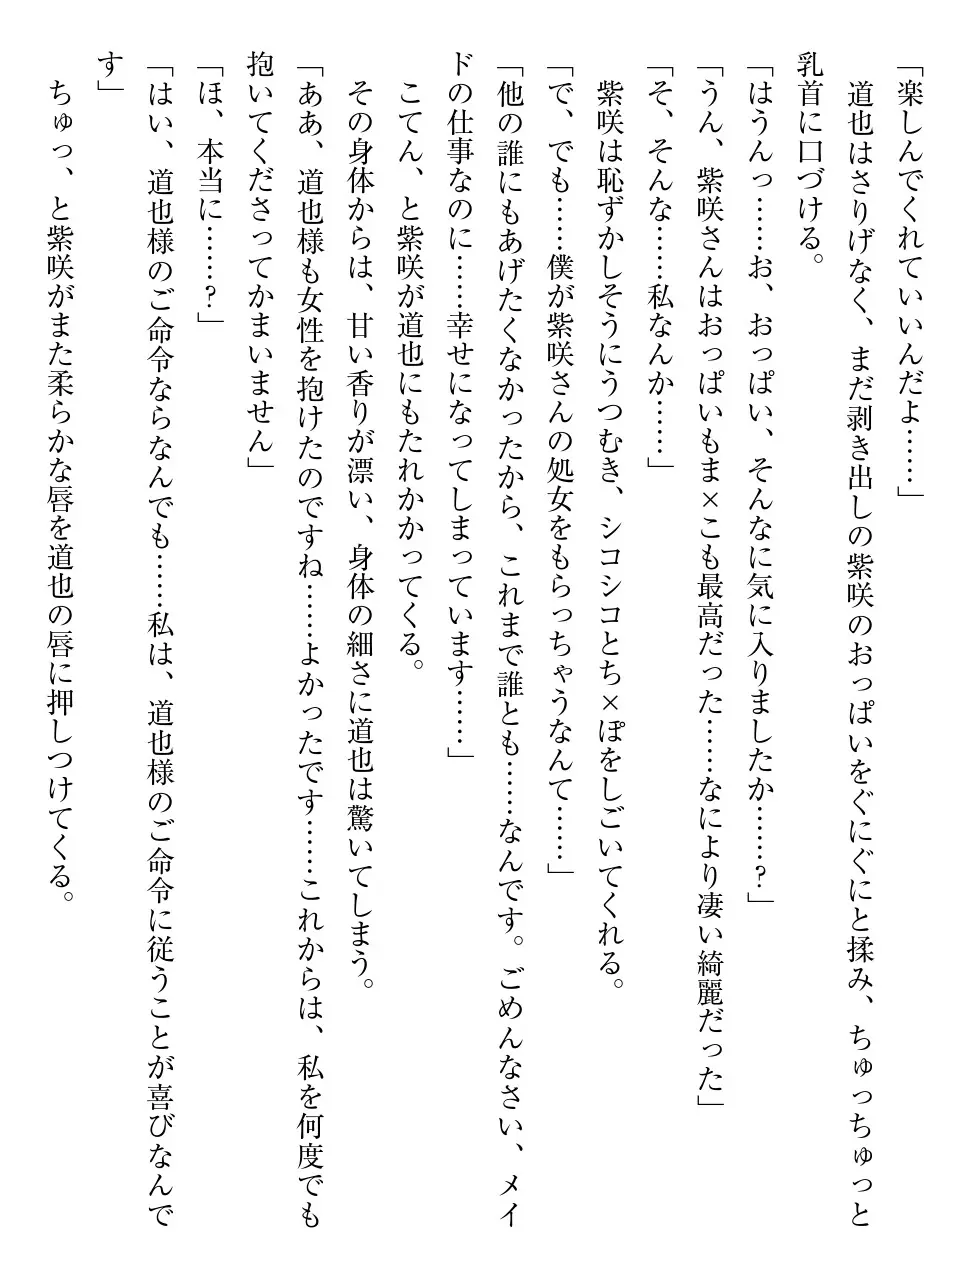 「楽しんでくれていいんだよ……」
　道也はさりげなく、まだ剥き出しの紫咲のおっぱいをぐにぐにと揉み、ちゅっちゅっと
乳首に口づける。
「はうんっ……お、おっぱい、そんなに気に入りましたか……？」
「うん、紫咲さんはおっぱいもま×こも最高だった……なにより凄い綺麗だった」
「そ、そんな……私なんか……」
　紫咲は恥ずかしそうにうつむき、シコシコとち×ぽをしごいてくれる。
「で、でも……僕が紫咲さんの処女をもらっちゃうなんて……」
「他の誰にもあげたくなかったから、これまで誰とも……なんです。ごめんなさい、メイ
ドの仕事なのに……幸せになってしまっています……」
　こてん、と紫咲が道也にもたれかかってくる。
　その身体からは、甘い香りが漂い、身体の細さに道也は驚いてしまう。
「ああ、道也様も女性を抱けたのですね……よかったです……これからは、私を何度でも
抱いてくださってかまいません」
「ほ、本当に……？」
「はい、道也様のご命令ならなんでも……私は、道也様のご命令に従うことが喜びなんで
す」
　ちゅっ、と紫咲がまた柔らかな唇を道也の唇に押しつけてくる。